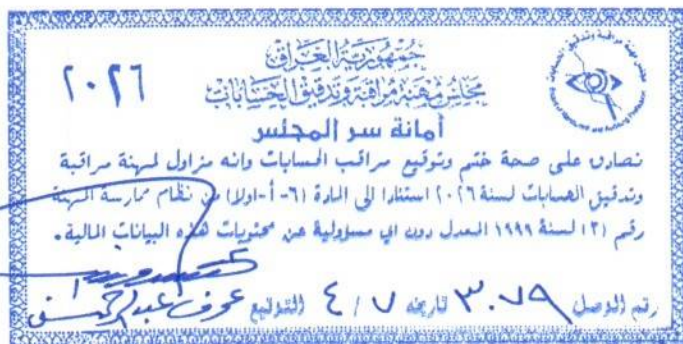 جمهورية العراق
مجلس مهنة مراقبة وتدقيق الحسابات
٢٠٢٦
أمانة سر المجلس
نصادق على صحة ختم وتوقيع مراقب الحسابات وانه مزاول لمهنة مراقبة
وتدقيق الحسابات لسنة ٢٠٢٦ استنادا الى المادة (٦-أ-اولا) من نظام ممارسة المهنة
رقم (٣) لسنة ١٩٩٩ المعدل دون اي مسؤولية عن محتويات هذه البيانات المالية.
رقم الوصل ٣٠٧٩ تاريخه ٧ / ٤ التوقيع